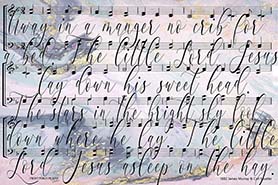 Away in a manger no crib for
a bed The little Lord Jesus
lay down his sweet head.
The stars in the bright sky look
down where he lay The little
Lord Jesus asleep on the hay